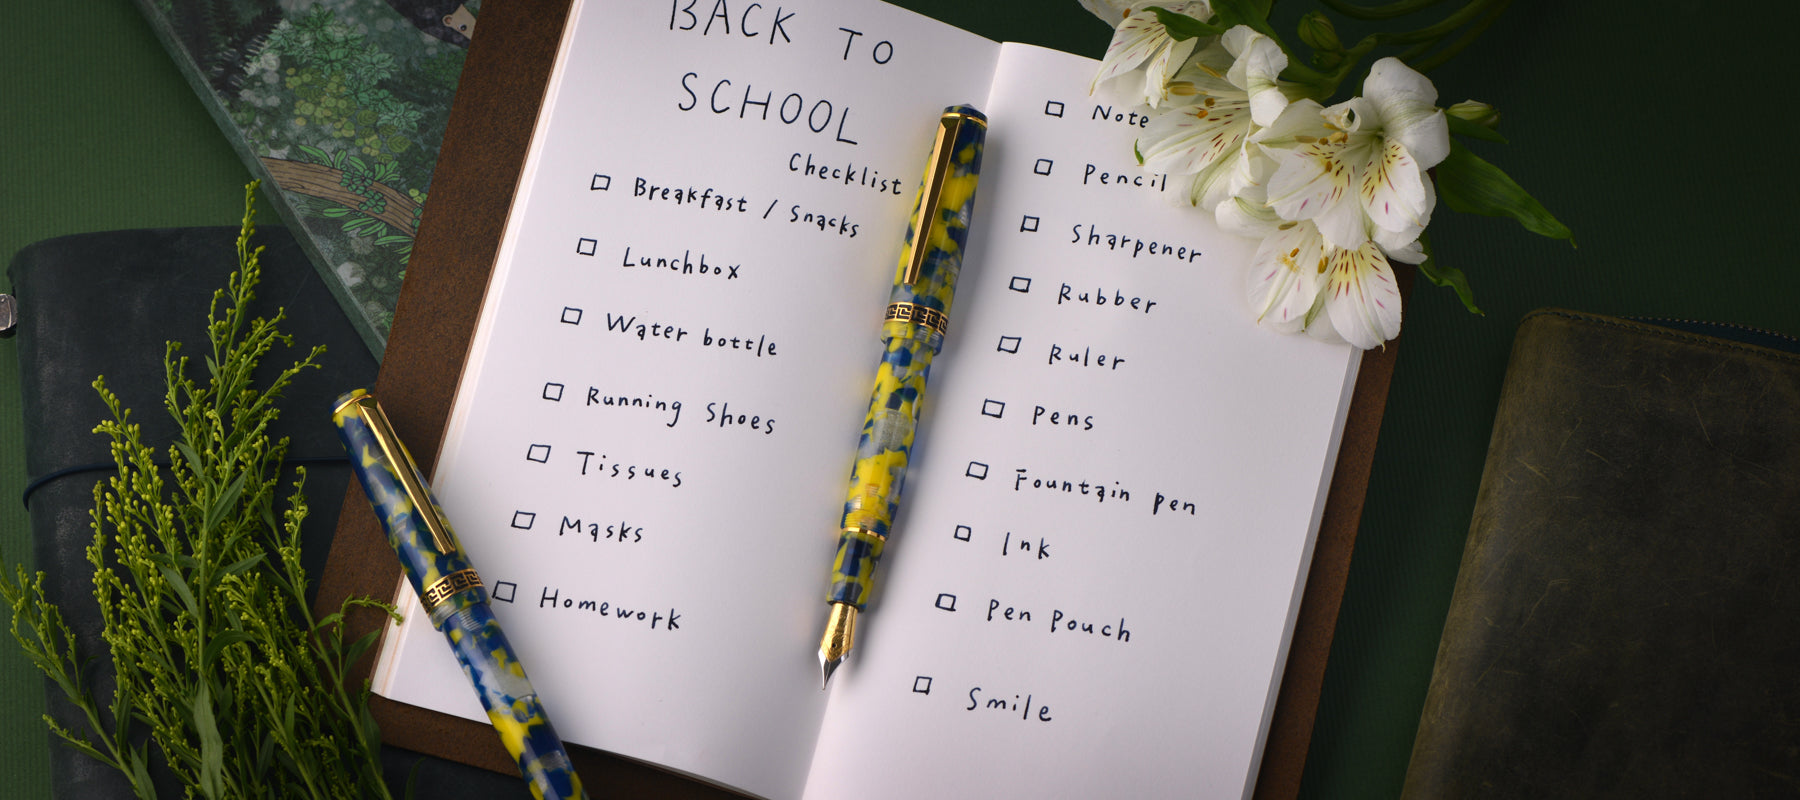 BACK TO
SCHOOL
Checklist
Breakfast / Snacks
Lunchbox
Water bottle
Running Shoes
Tissues
Masks
Homework
Note
Pencil
Sharpener
Rubber
Ruler
Pens
Fountain pen
Ink
Pen Pouch
Smile